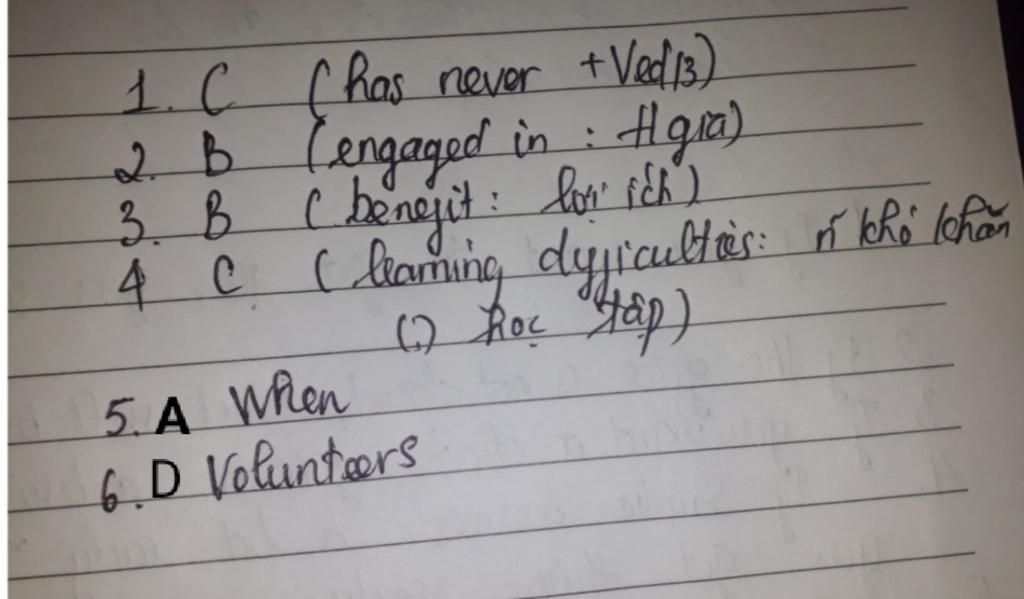 1. C (has never + Ved/3)
2. B (engaged in : t/gia)
3. B (benefit: lợi ích)
4 C (learning difficulties: n~ khó khăn
(:) học tập)
5. A When
6. D Volunteers